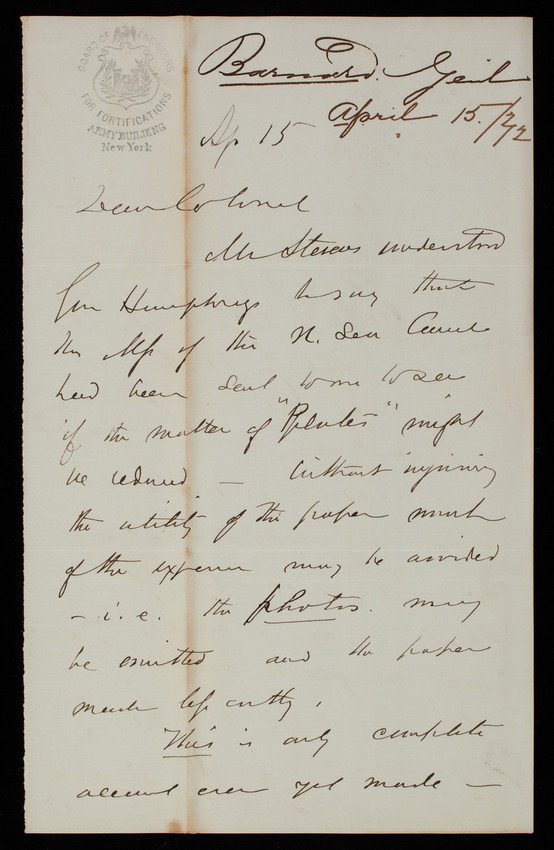 BOARD OF ENGINEERS
FOR FORTIFICATIONS
ARMY BUILDING
New York
Barnard. Genl
April 15./72
Ap 15
Dear Colonel
Mr Stevens understood
Gen Humphreys to say that
the Mss of the N. Sea Canal
had been sent to me to see
if the matter of "Plates" might
be reduced — Without injuring
the utility of this paper much
of the expense may be avoided
- i.e. the photos. may
be omitted and the paper
made less costly.
This is only complete
account ever yet made —